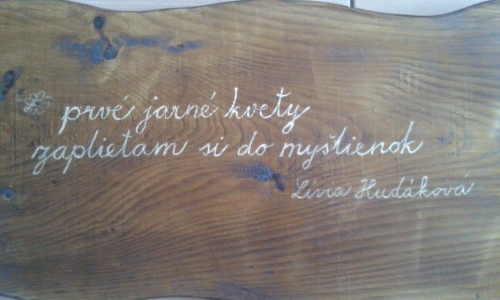 prvé jarné kvety
zaplietam si do myšlienok
Lívia Hudáková